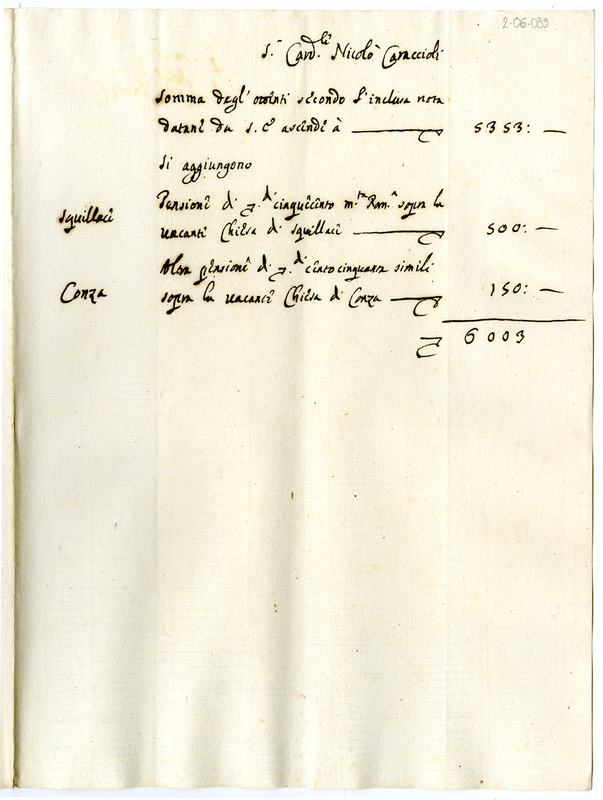 2-06-039
S.r Card.le Nicolò Caraccioli
Somma degl'ottenti secondo l'inclusa nota
datane da S. E. ascende à 5353: —
Si aggiungono
Squillaci
Pensione di d.i cinquecento m.ta Rom.a sopra la
vacante Chiesa di Squillaci 500: —
Altra pensione di d.i cento cinquanta simili
Conza
sopra la vacante Chiesa di Conza 150: —
6003